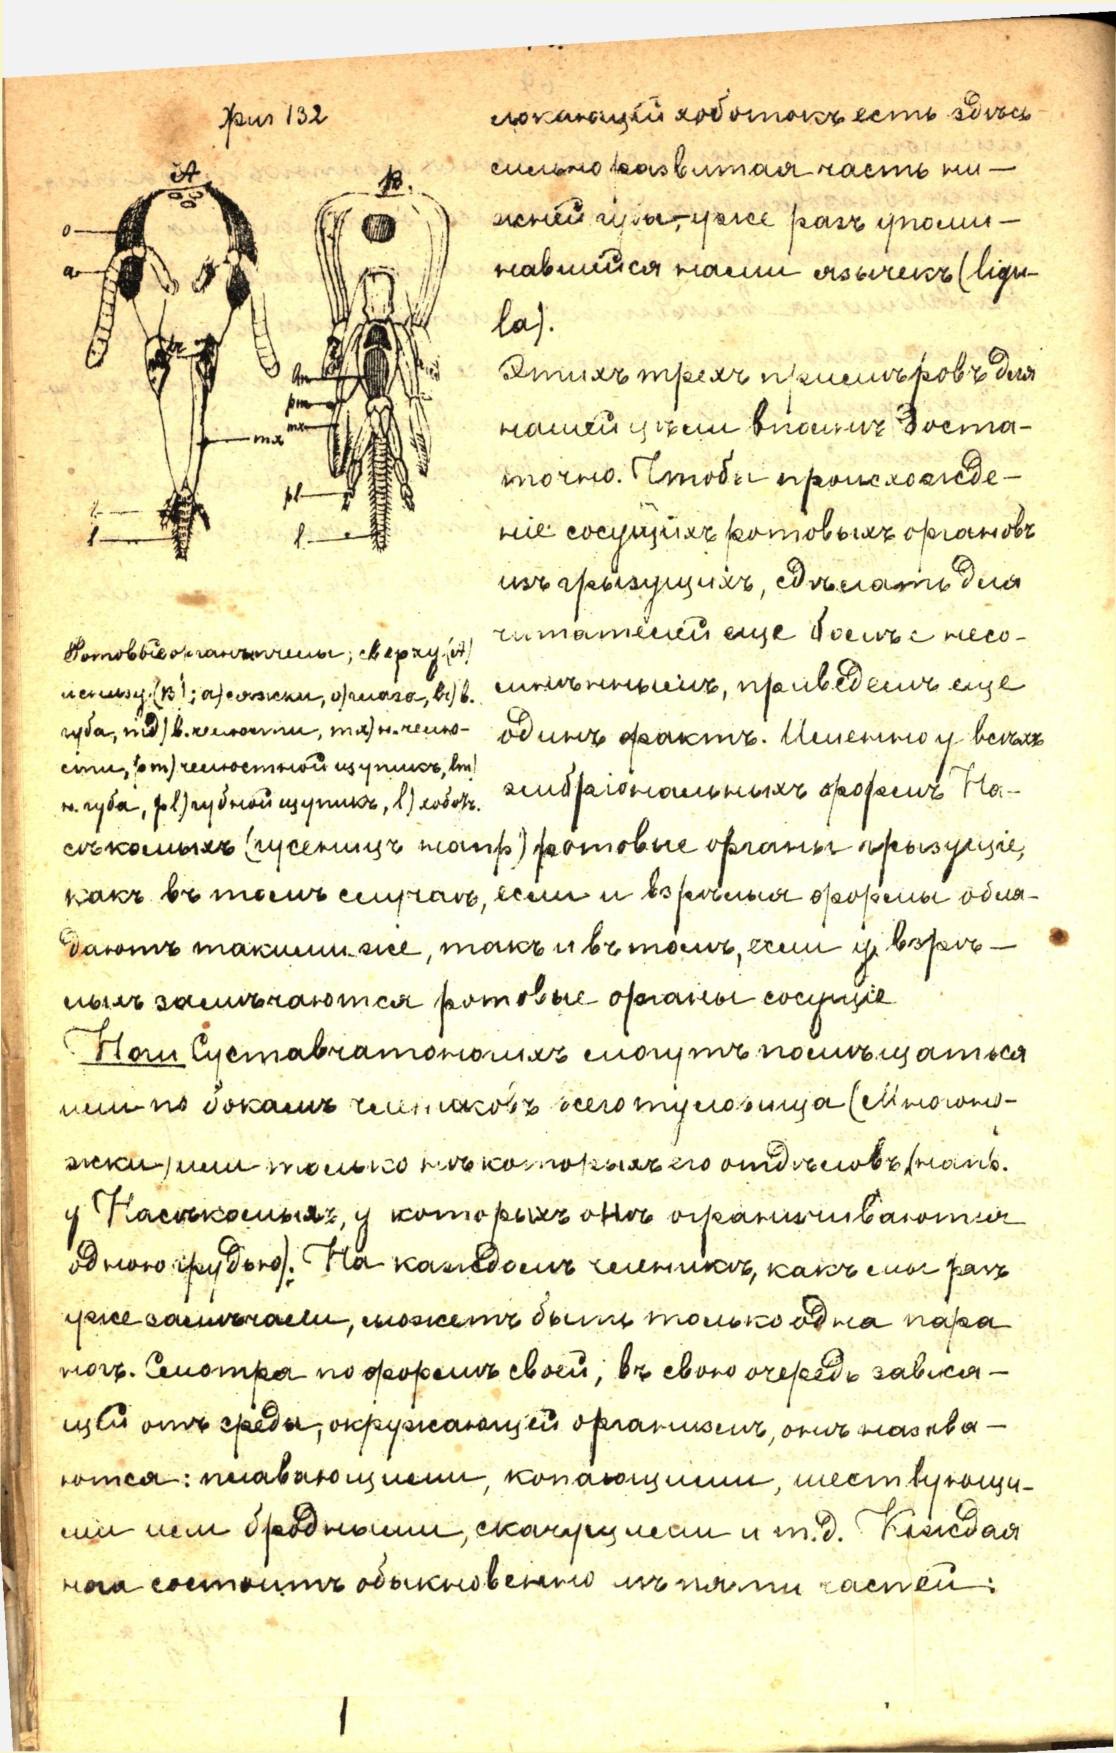 Фиг 132
A
B.
o
a
br
mx
lm
pm
mx
pl
l
l
Ротовые органы пчелы; сверху (A)
и снизу (B); a) сяжки, o) глаза, br) в.
губа, md) в. челюсти, mx) н. челю-
сти, pm) челюстной щупикъ, lm)
н. губа, pl) губной щупикъ, l) хобот.
локающій хоботокъ есть здѣсь
сильно развитая часть ни-
жней губы, уже разъ упоми-
навшийся нами язычекъ (ligu-
la).
Этихъ трехъ примѣровъ для
нашей цѣли вполнѣ доста-
точно. Чтобы происхожде-
ніе сосущихъ ротовыхъ органовъ
изъ грызущихъ, сдѣлать для
читателей еще болѣе несо-
мнѣннымъ, приведемъ еще
одинъ фактъ. Именно у всѣхъ
эмбріональныхъ формъ На-
сѣкомыхъ (гусеницъ напр) ротовые органы грызущіе,
какъ въ томъ случаѣ, если и взрѣлыя формы обла-
даютъ такими же, такъ и въ томъ, если у взрѣ-
лыхъ замѣчаются ротовые органы сосущіе
Ноги Суставчатоногихъ могутъ помѣщаться
или по бокамъ члениковъ всего туловища (Многоно-
жки) или только нѣкоторыхъ его отдѣловъ (напр.
у Насѣкомыхъ, у которыхъ онѣ ограничиваются
одною грудью). На каждомъ членикѣ, какъ мы разъ
уже замѣчали, можетъ быть только одна пара
ногъ. Смотра по формѣ своей, въ свою очередь завися-
щей отъ среды, окружающей организмъ, онѣ назва-
ются: плавающими, копающими, шествующи-
ми или бродными, скачущими и т.д. Каждая
нога состоитъ обыкновенно изъ пяти частей: